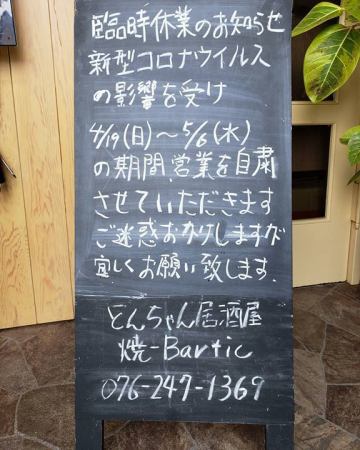 臨時休業のお知らせ
新型コロナウイルス
の影響を受け
4/19(日)～5/6(水)
の期間、営業を自粛
させていただきます
ご迷惑おかけしますが
宜しくお願い致します.
とんちゃん居酒屋
焼-Bartic
076-247-1369